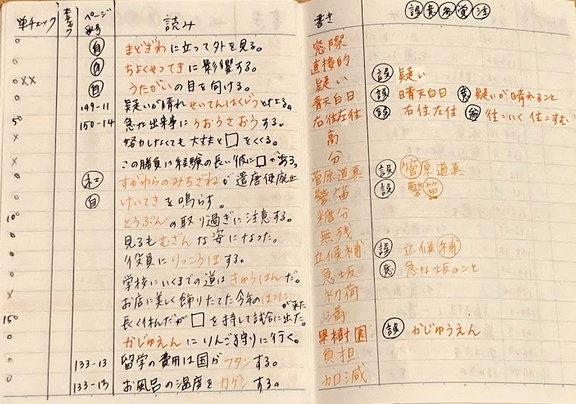 単チェック ページ番号 読み
自 まどぎわに立って外を見る。
自 ちょくせつてきに影響する。
自 うたがいの目を向ける。
149-11 疑いが晴れせいてんはくじつとなる。
150-14 急な出来事にうおうさおうする。
努力しなくても大丈夫と□をくくる。
この勝負は経験の長い彼に□がある。
社 すがわらのみちざねが遣唐使廃止
自 けいてきを鳴らす。
とうぶんの取り過ぎに注意する。
見るもむざんな姿になった。
役員にりっこうほする。
学校にいくまでの道はきゅうはんだ。
お店に美しく飾りたてた今年のはつにが来た
長く休んだが□を持して試合に出た。
かじゅえんにりんご狩りに行く。
133-13 留学の費用は国がフタンする。
133-13 お風呂の温度をカゲンする。
書き 誤 意 覚 注
窓際
直接的
疑い 誤 疑い
青天白日 誤 晴天白日 意 疑いが晴れること
右往左往 誤 右住左住 往:いく 住:すむ
高
分
菅原道真 誤 管原道真
警笛 誤 警笛
糖分
無残
立候補 誤 立候補
急坂 意 急な坂のこと
初荷
満
果樹園 誤 かじゅうえん
負担
加減